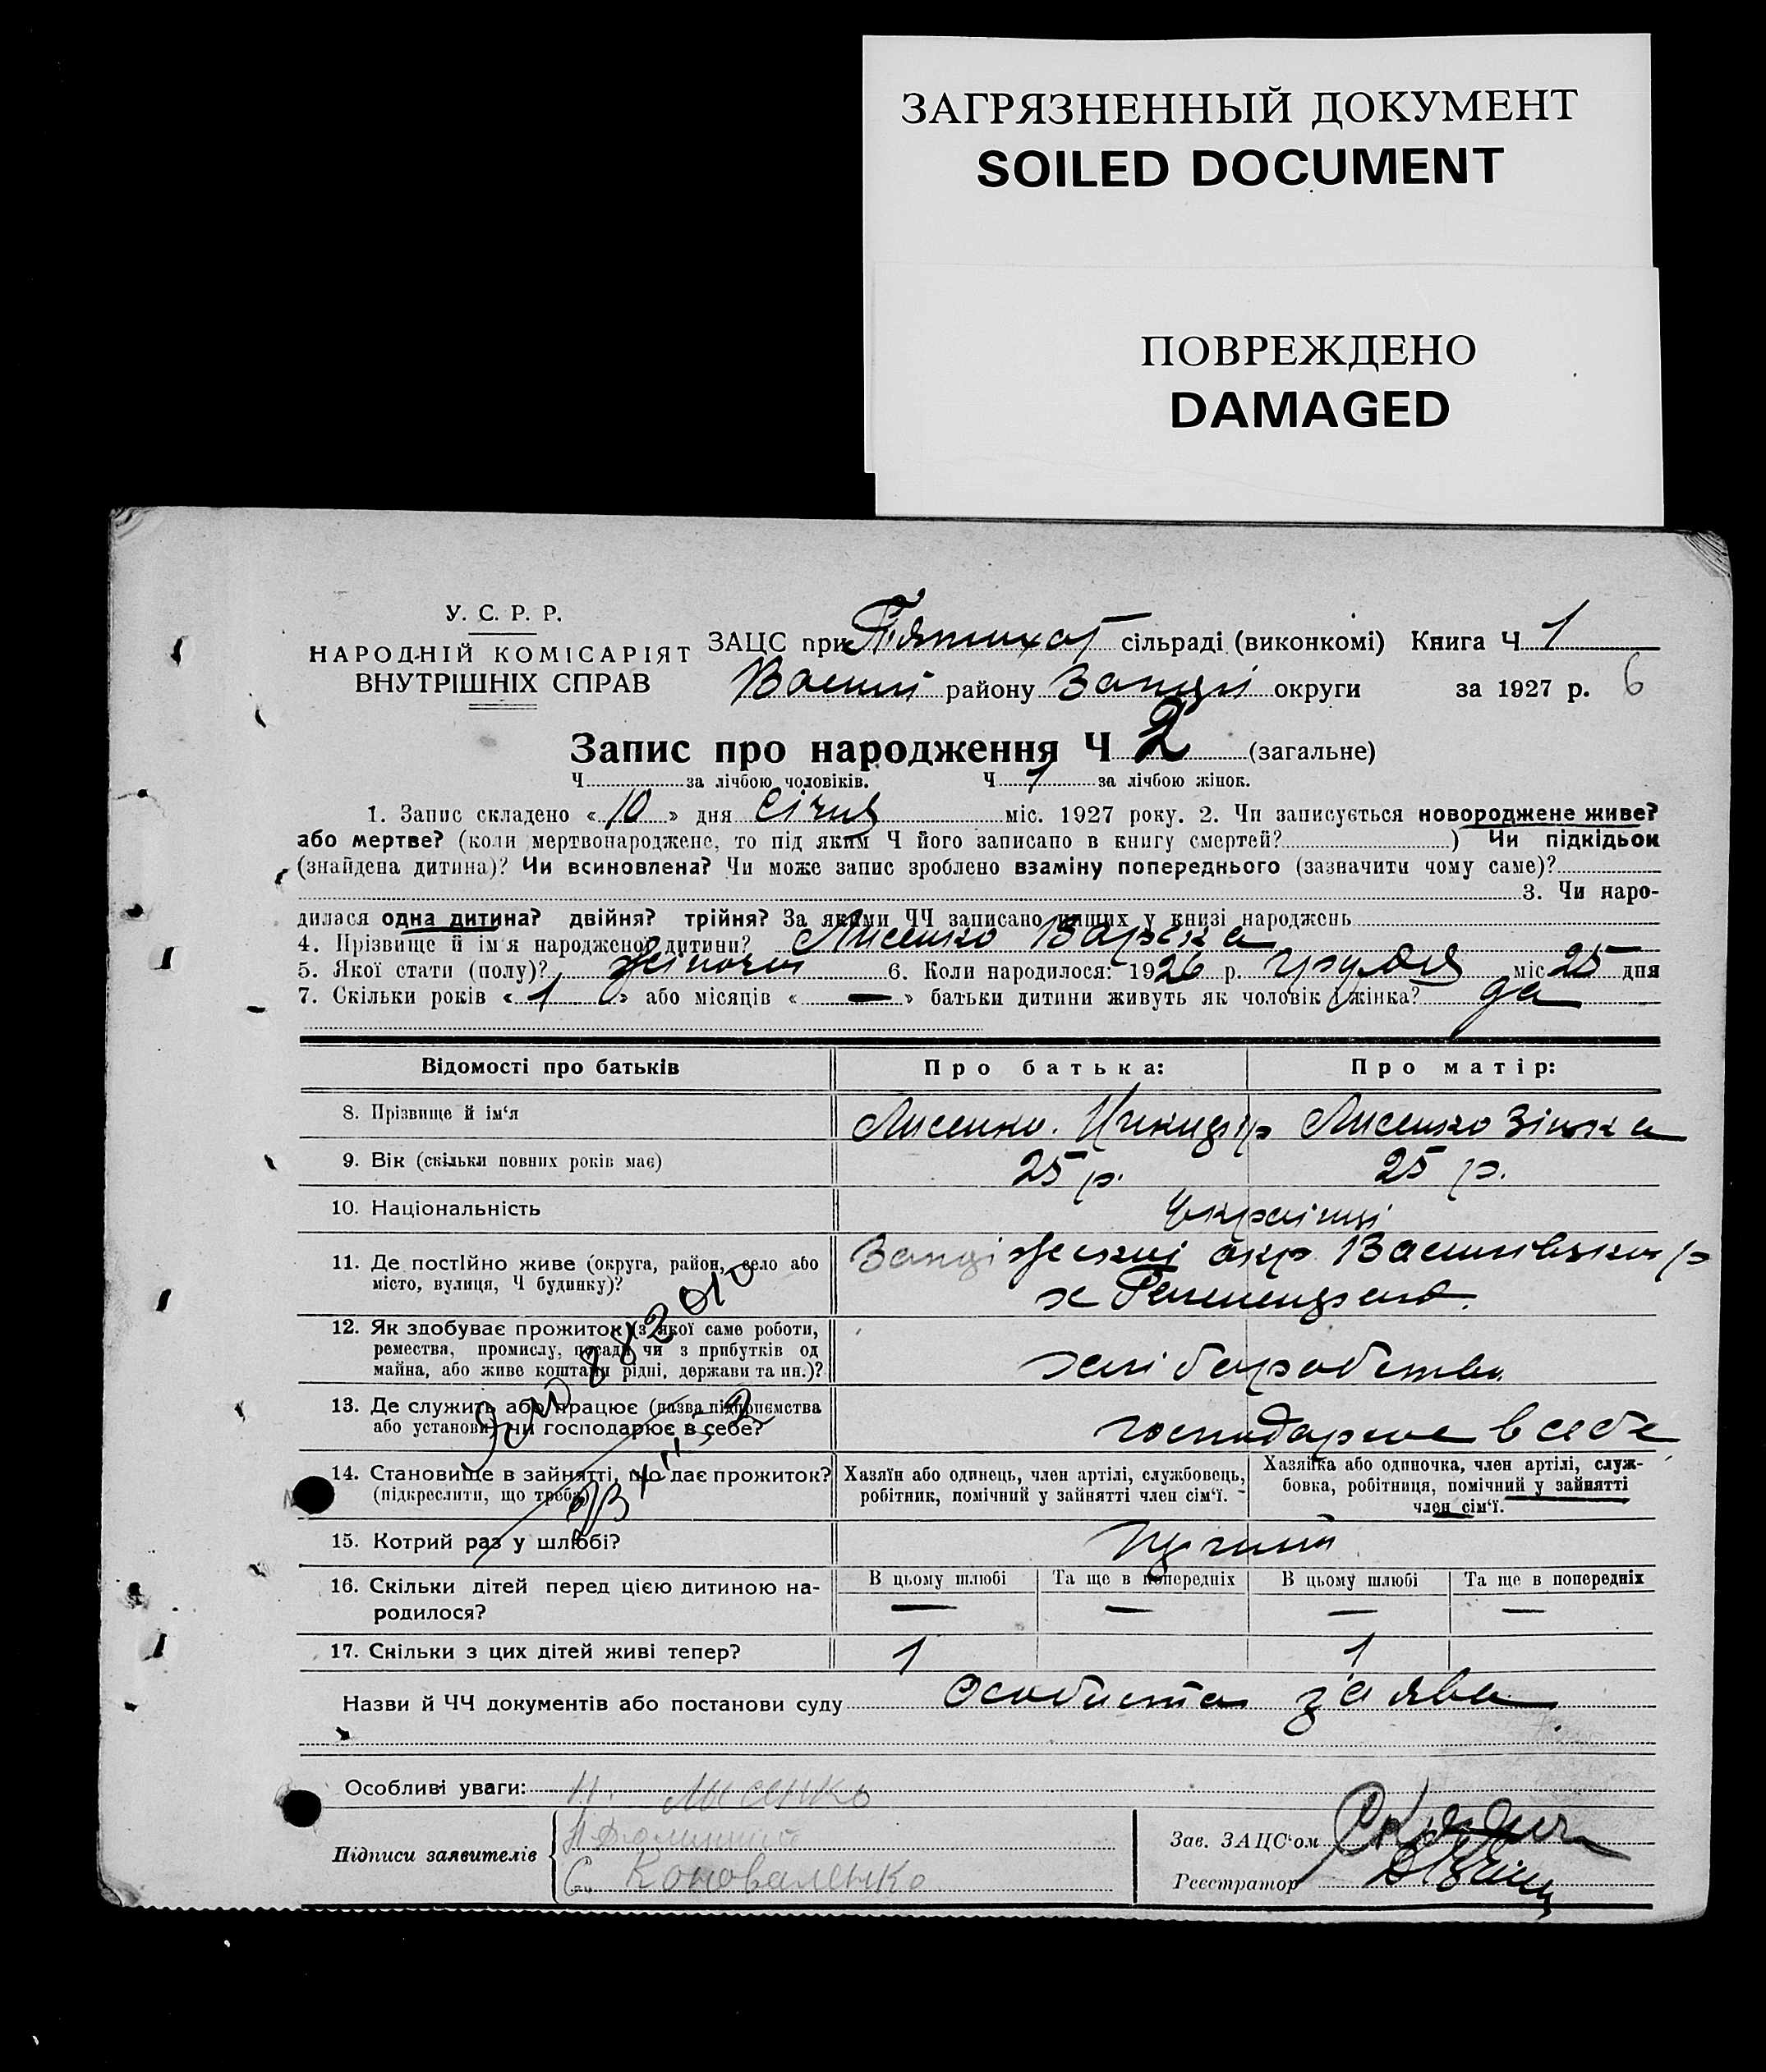 ЗАГРЯЗНЕННЫЙ ДОКУМЕНТ
SOILED DOCUMENT
ПОВРЕЖДЕНО
DAMAGED
У. С. Р. Р.
НАРОДНІЙ КОМІСАРІЯТ
ВНУТРІШНІХ СПРАВ
ЗАЦС при Пятихат сільраді (виконкомі) Книга Ч 1
Васил району Запцкі округи за 1927 р. 6
Запис про народження Ч 2 (загальне)
Ч за лічбою чоловіків. Ч 1 за лічбою жінок.
1. Запис складено «10» дня січня міс. 1927 року. 2. Чи записується новороджене живе?
або мертве? (коли мертвонароджене, то під яким Ч його записано в книгу смертей? ) Чи підкідьок
(знайдена дитина)? Чи всиновлена? Чи може запис зроблено взаміну попереднього (зазначити чому саме)?
3. Чи наро-
дилася одна дитина? двійня? трійня? За якими ЧЧ записано инших у книзі народжень
4. Прізвище й ім'я народженої дитини? Лисенко Варька
5. Якої стати (полу)? жіночої 6. Коли народилося: 1926 р. грудня міс 25 дня
7. Скільки років «1» або місяців «—» батьки дитини живуть як чоловік і жінка? да
Відомості про батьків Про батька: Про матір:
8. Прізвище й ім'я Лисенко Никифір Лисенко Зінька
9. Вік (скільки повних років має) 25 р. 25 р.
10. Національність Українці
11. Де постійно живе (округа, район, село або
місто, вулиця, Ч будинку)? окр Василівськ р
х
12. Як здобуває прожиток (з якої саме роботи,
ремества, промислу, посади чи з прибутків од
майна, або живе коштами рідні, держави та ин.)? хліборобство
13. Де служить або працює (назва підприємства
або установи) чи господарює в себе? господарює в себе
14. Становище в зайнятті, що дає прожиток?
(підкреслити, що треба)
Хазяїн або одинець, член артілі, службовець,
робітник, помічний у зайнятті член сім'ї.
Хазяйка або одиночка, член артілі, служ-
бовка, робітниця, помічний у зайнятті
член сім'ї.
15. Котрий раз у шлюбі? перший
16. Скільки дітей перед цією дитиною на-
родилося?
В цьому шлюбі Та ще в попередніх В цьому шлюбі Та ще в попередніх
— — — —
17. Скільки з цих дітей живі тепер? 1 1
Назви й ЧЧ документів або постанови суду Особиста заява
Особливі уваги: Н. Лисенко
Підписи заявителів
С. Коноваленко
Зав. ЗАЦС'ом
Реєстратор